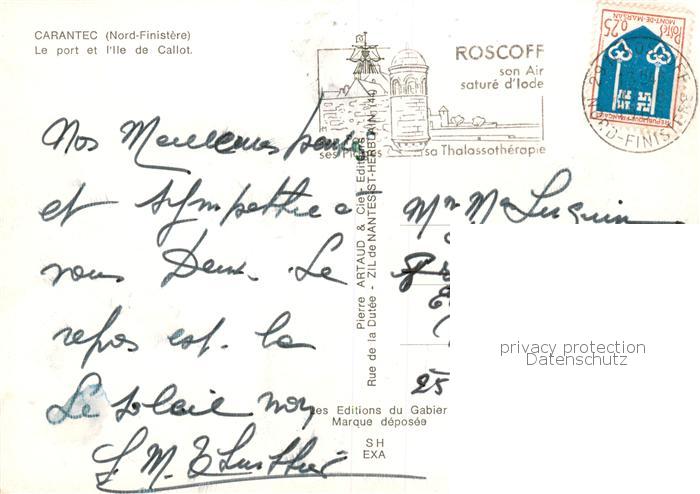 CARANTEC (Nord-Finistère)
Le port et l'Ile de Callot.
ROSCOFF
son Air
saturé d'Iode
ses Plages
sa Thalassothérapie
Postes
0,25
MONT-DE-MARSAN
REPUBLIQUE FRANÇAISE
NORD-FINISTERE
Nos Meilleures pensées
et sympathie a
vous Deux. Le
repos est la
Le soleil non
Mr Me
25
Pierre ARTAUD & Cie - Editions
Rue de la Dutée - ZIL de NANTES-ST-HERBLAIN (44)
Les Editions du Gabier
Marque déposée
SH
EXA
privacy protection
Datenschutz